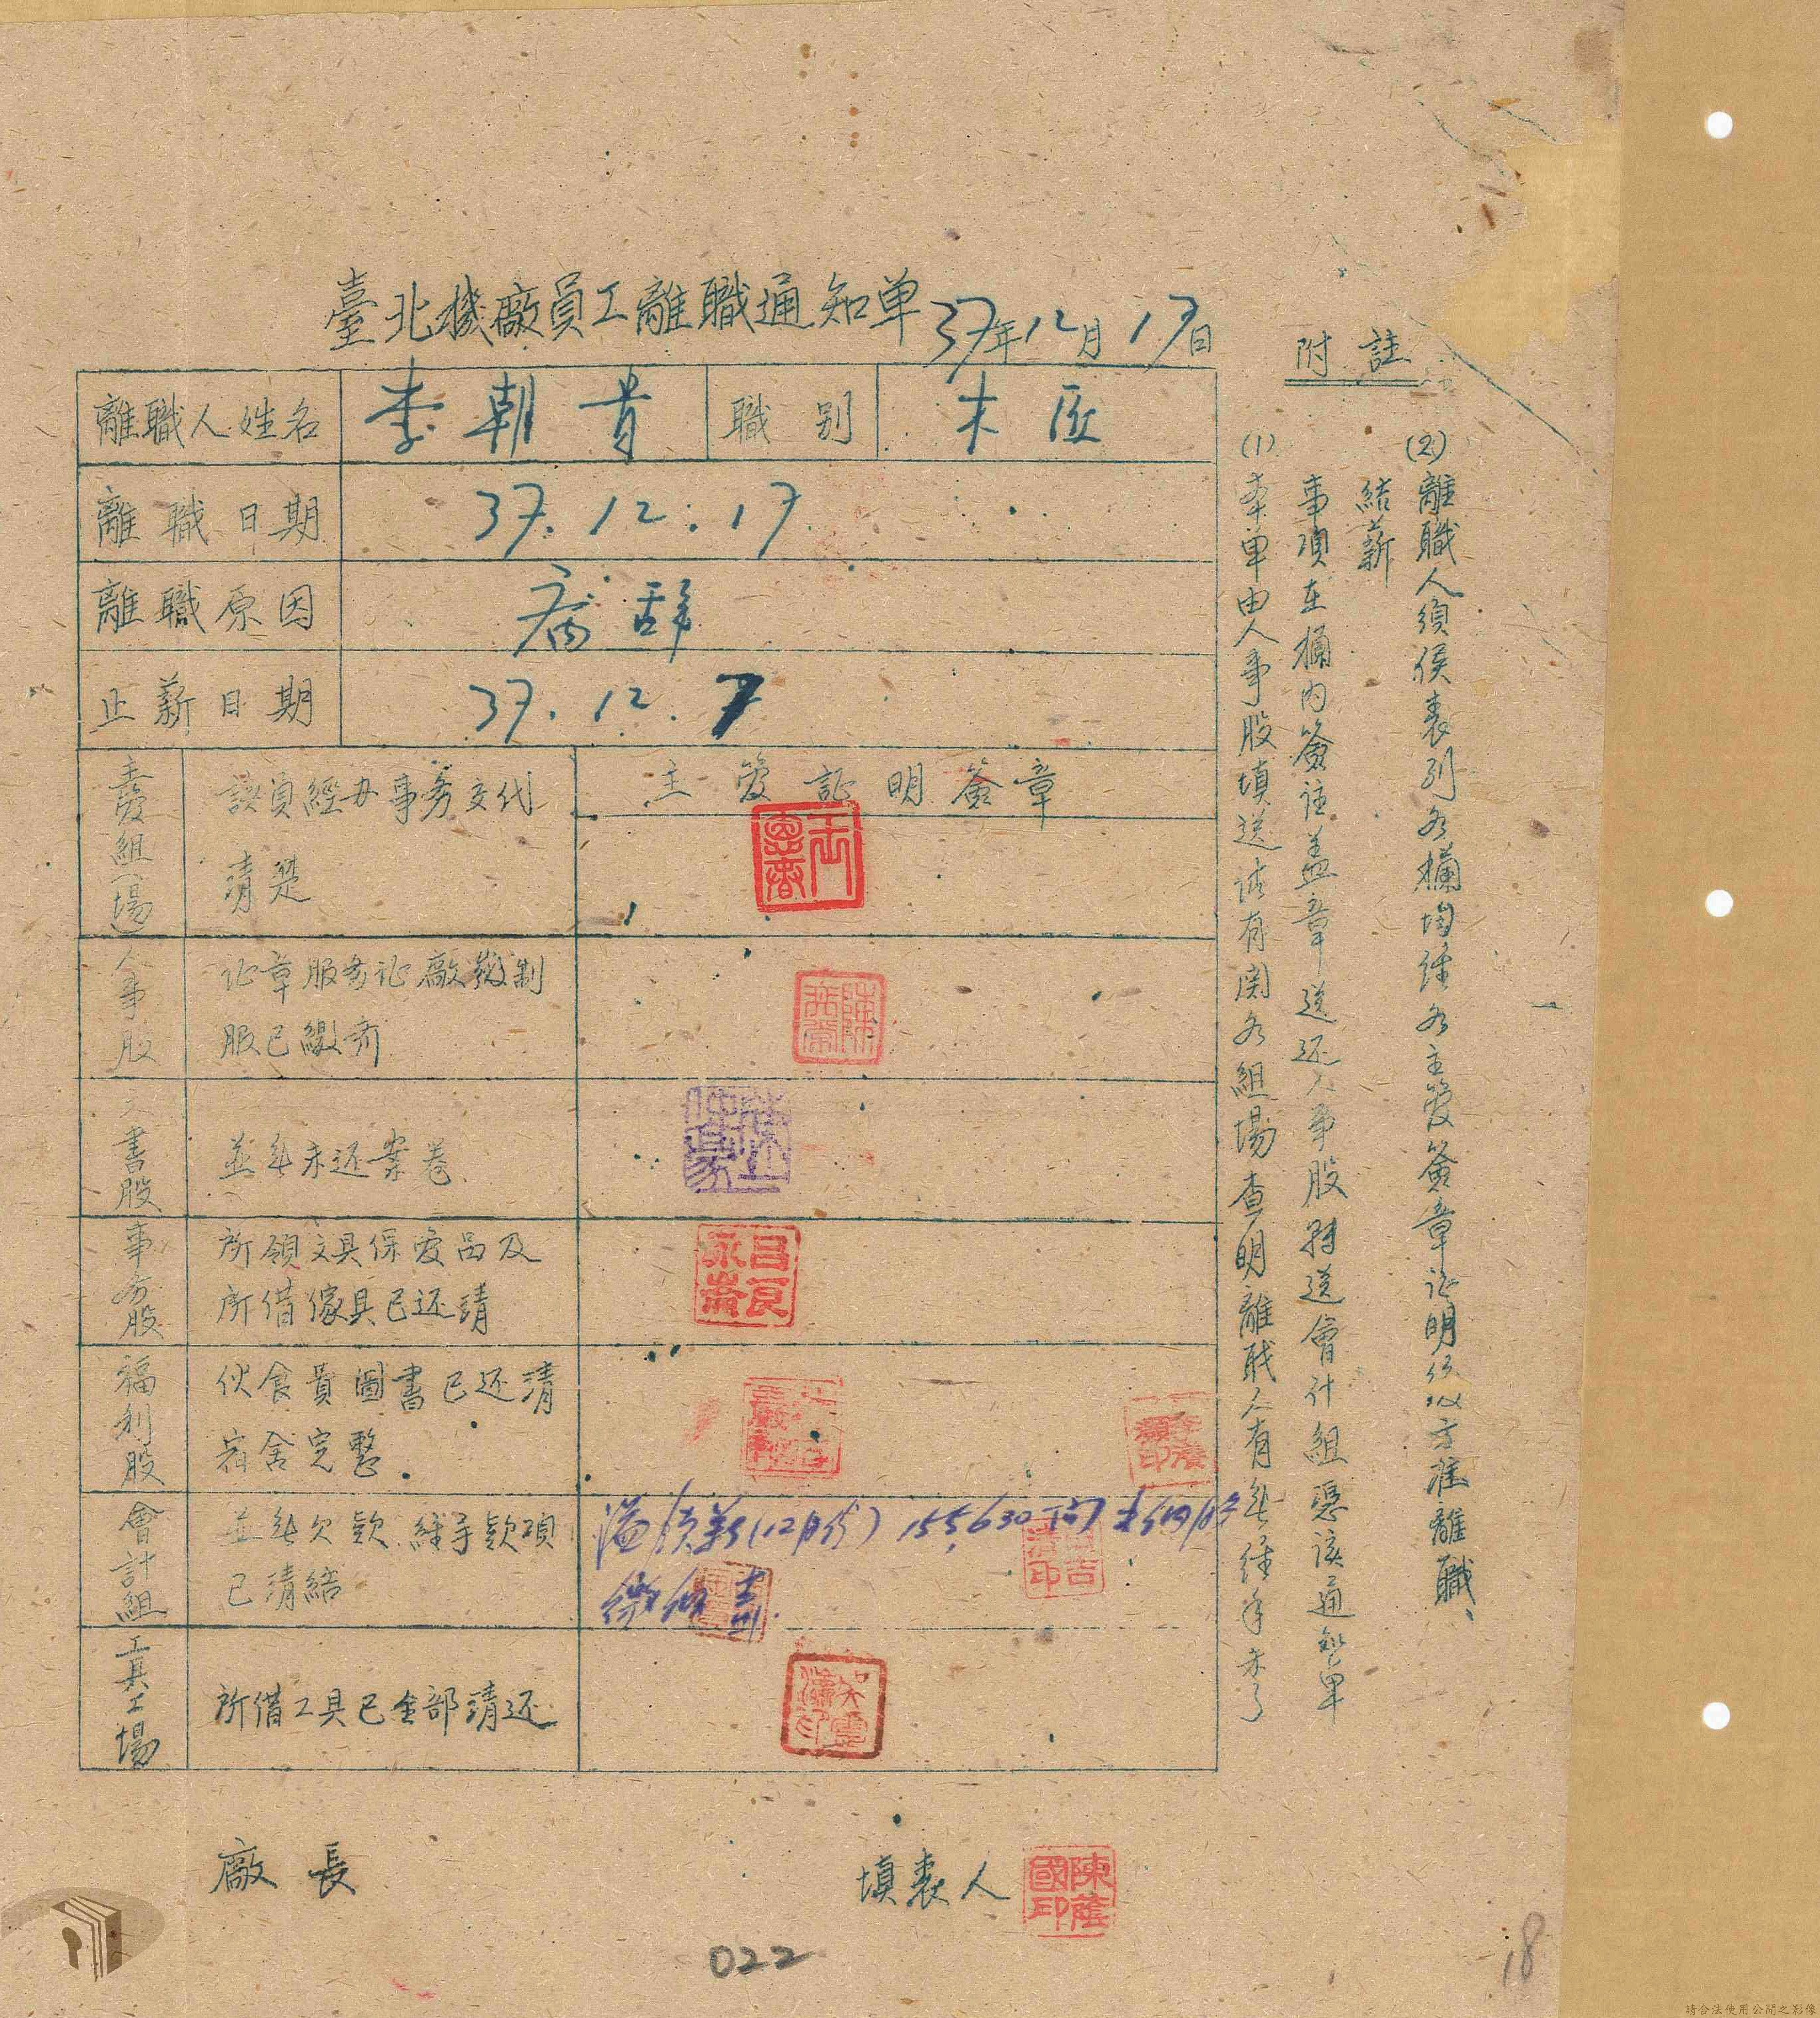 臺北機廠員工離職通知單 37年12月17日
離職人姓名 李朝貴 職別 木匠
離職日期 37.12.17
離職原因 病辭
止薪日期 37.12.7
主管組(場) 該員經办事务交代
清楚
主管証明簽章
人事股 证章服务证廠發制
服已繳齐
文書股 並無未还案卷
事务股 所領文具保管品及
所借傢具已还清
福利股 伙食費圖書已还清
宿舍完整
會計組 並無欠欵經手欵項
已清結
溢領薪(12月份) 155,630
工具工場 所借工具已全部清还
附註
(1)本单由人事股填送請有関各組場查明離職人有無經手未了
事項在欄内簽註盖章送还人事股轉送會计組憑該通知单
結薪
(2)離職人須俟表列各欄均經各主管簽章证明後以方准離職、
廠長
填表人 陳蔭國印
022
18
請合法使用公開之影像